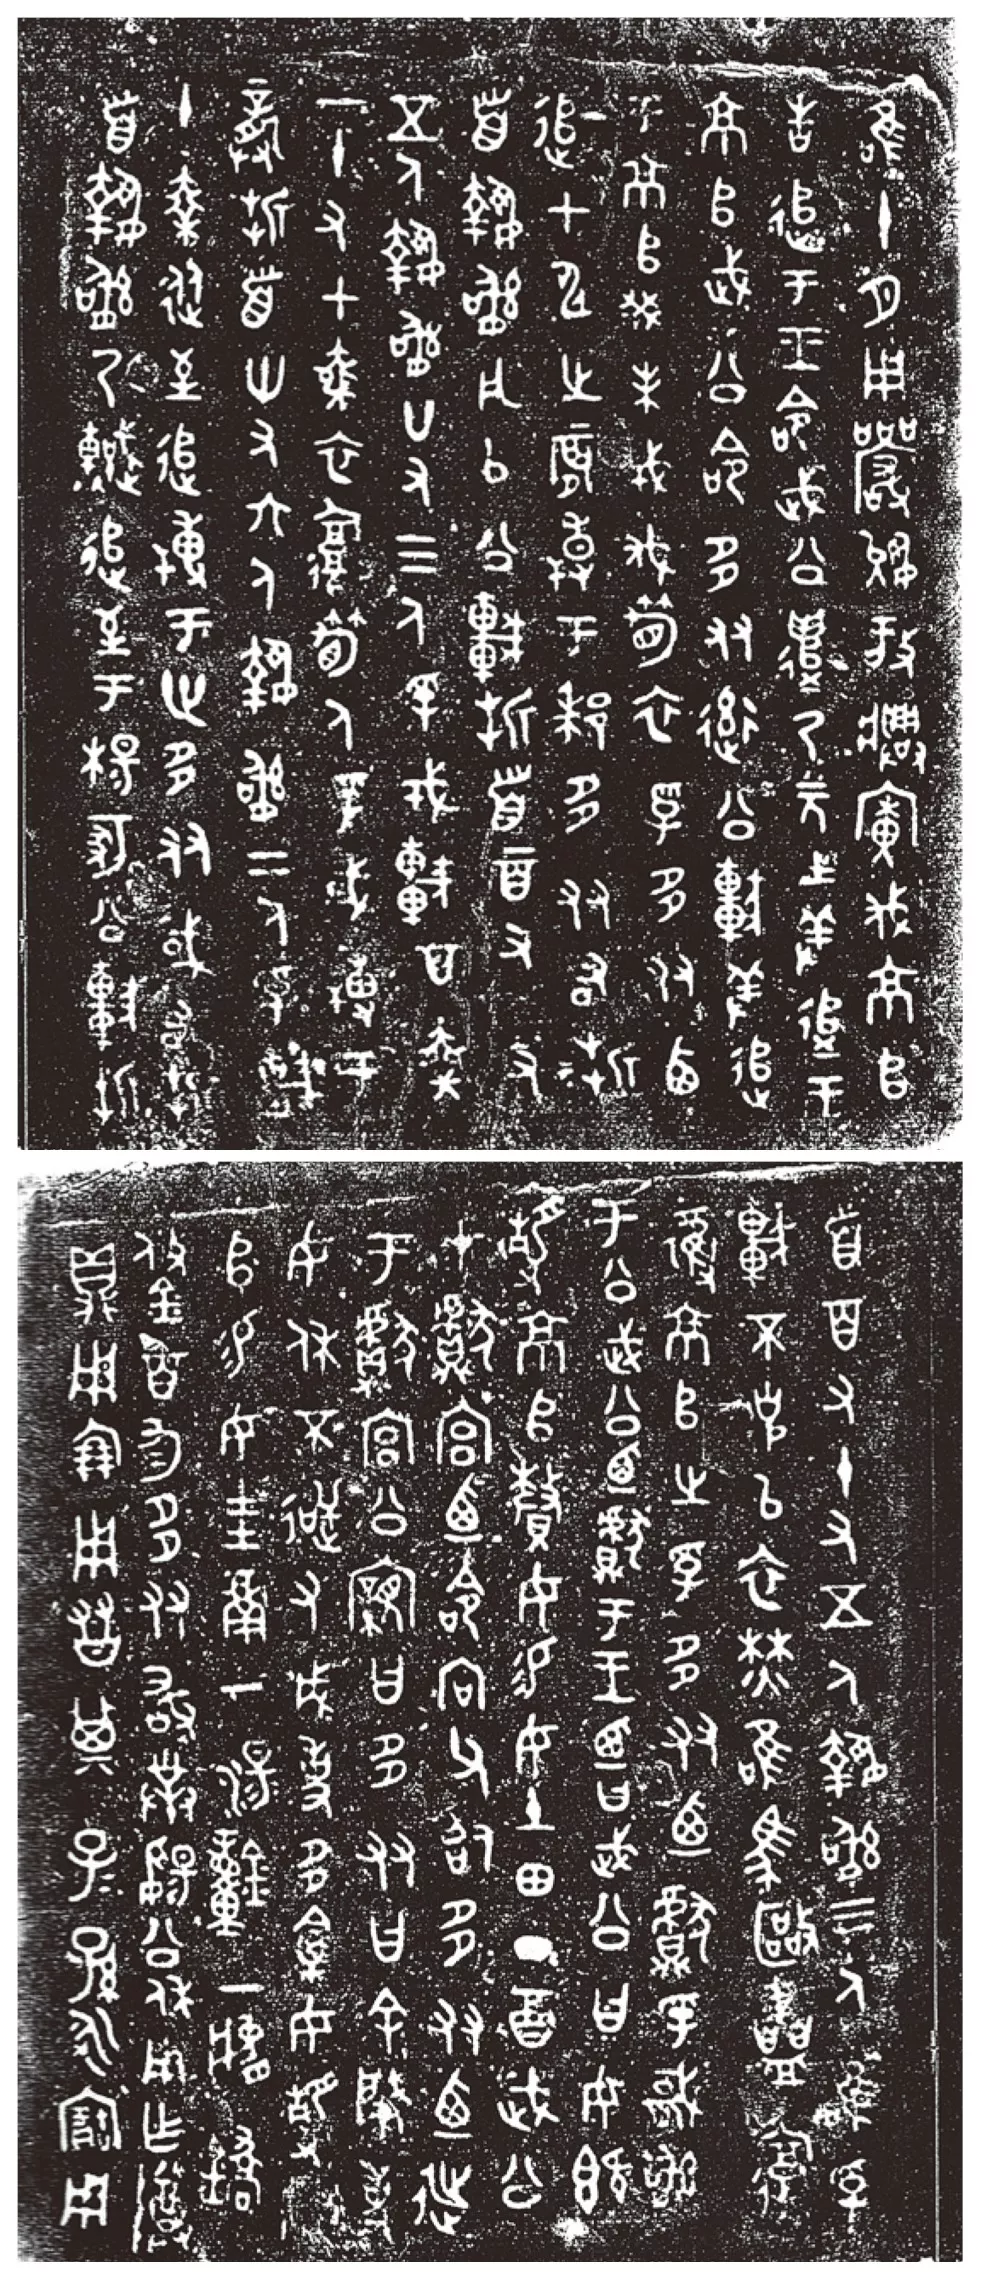 唯十月用嚴允放興廣伐京𠂤
告追于王命武公遣乃元士羞追于
京𠂤武公命多友率公車羞追
于京𠂤癸未戎伐筍衣孚多友西
追甲申之辰搏于郗多友右折
首執訊凡以公車折首二百又又
五人執訊廿又三人孚戎車百乘
一十又七乘衣復筍人孚或搏于
龏折首卅又六人執訊二人孚車
十乘從至追搏于世多友或右折
首執訊乃轢追至于楊冢公車折
首百又十又五人執訊三人唯孚
車不克以衣焚唯馬敺盡復
奪京𠂤之孚多友乃獻孚馘訊
于公武公乃獻于王乃曰武公曰女既
靜京𠂤釐女易女土田丁酉武公
才獻宮乃命向父召多友乃延
于獻宮公親曰多友曰余肇事
女休不逆又成事多禽女靜京
𠂤易女圭瓚一湯鐘一肆鐈鋚
百勻多友敢對揚公休用乍尊
鼎用朋用友其子子孫永寶用